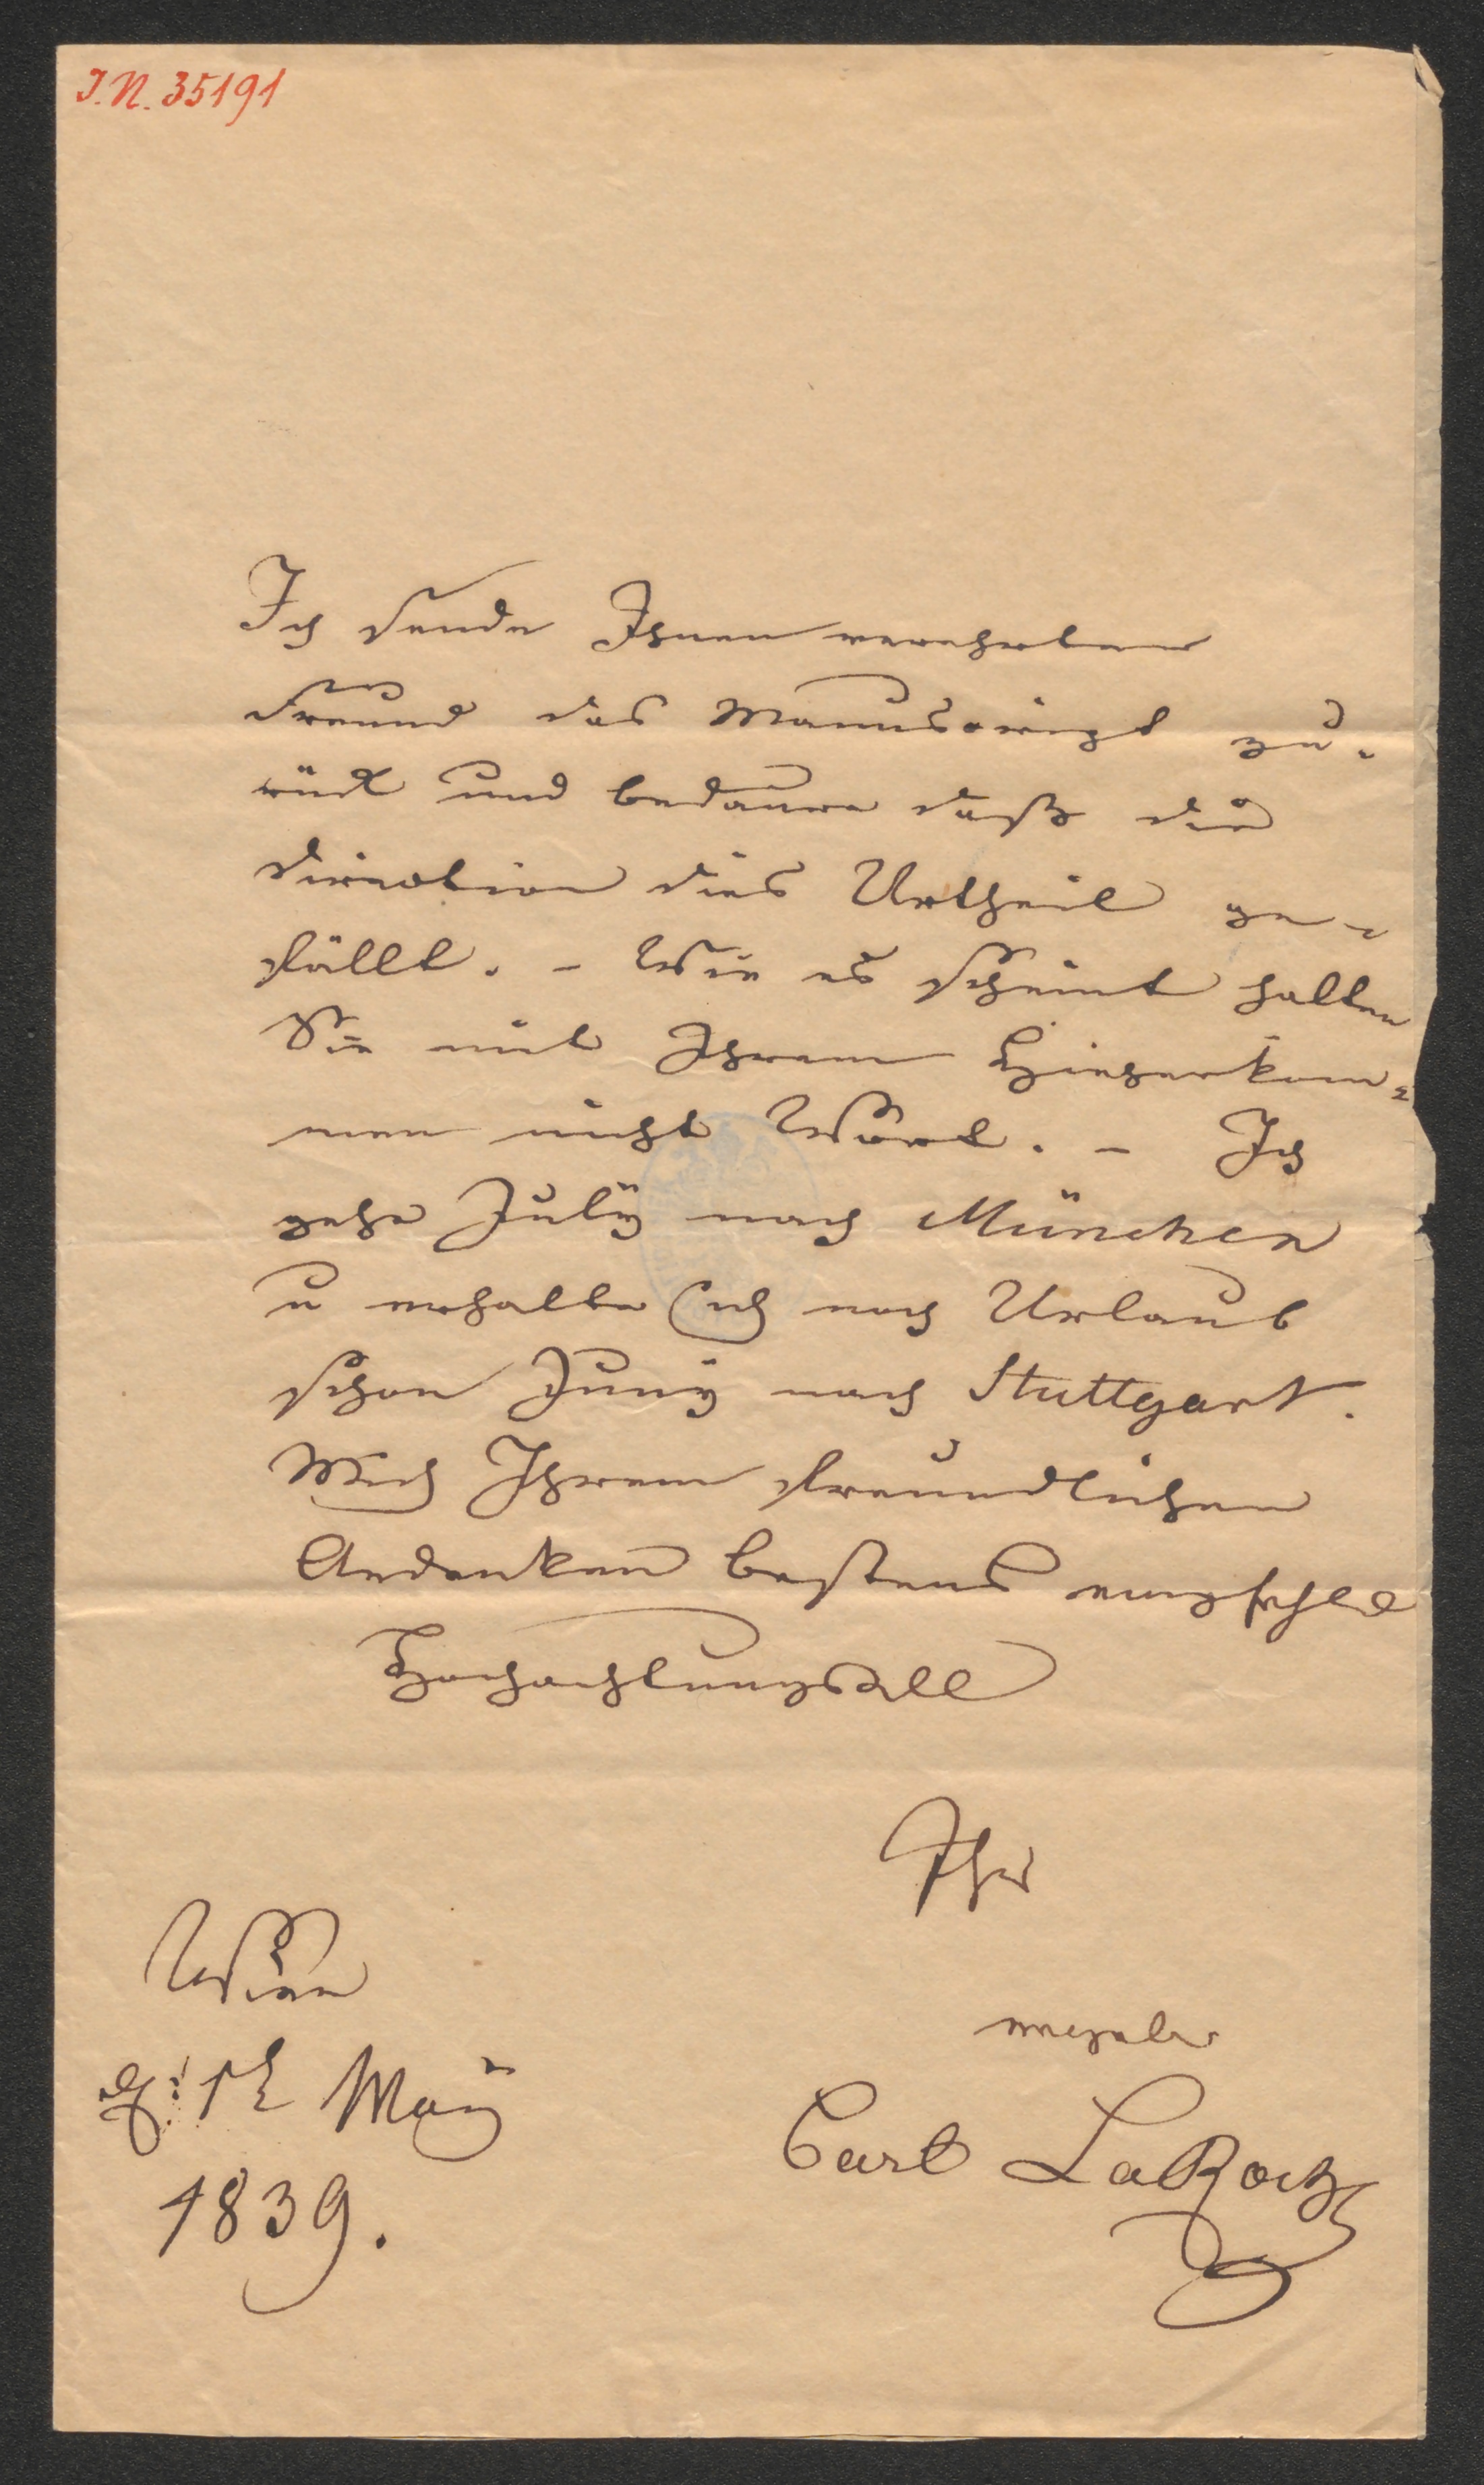 I.N. 35191
Ich sende Ihnen verehrter
Freund das Manuscript zu-
rück und bedaure daß die
Direction dies Urtheil ge-
fällt. - Wie es scheint halten
Sie mit Ihrem Hieherkom-
men nicht Wort. - Ich
gehe July nach München
u erhalte ich noch Urlaub
schon Juny nach Stuttgart.
Mich Ihrem freundlichen
Andenken bestens empfehle
Hochachtungsvoll
Ihr
Wien
ergebn
May
Carl LaRoche
1839.